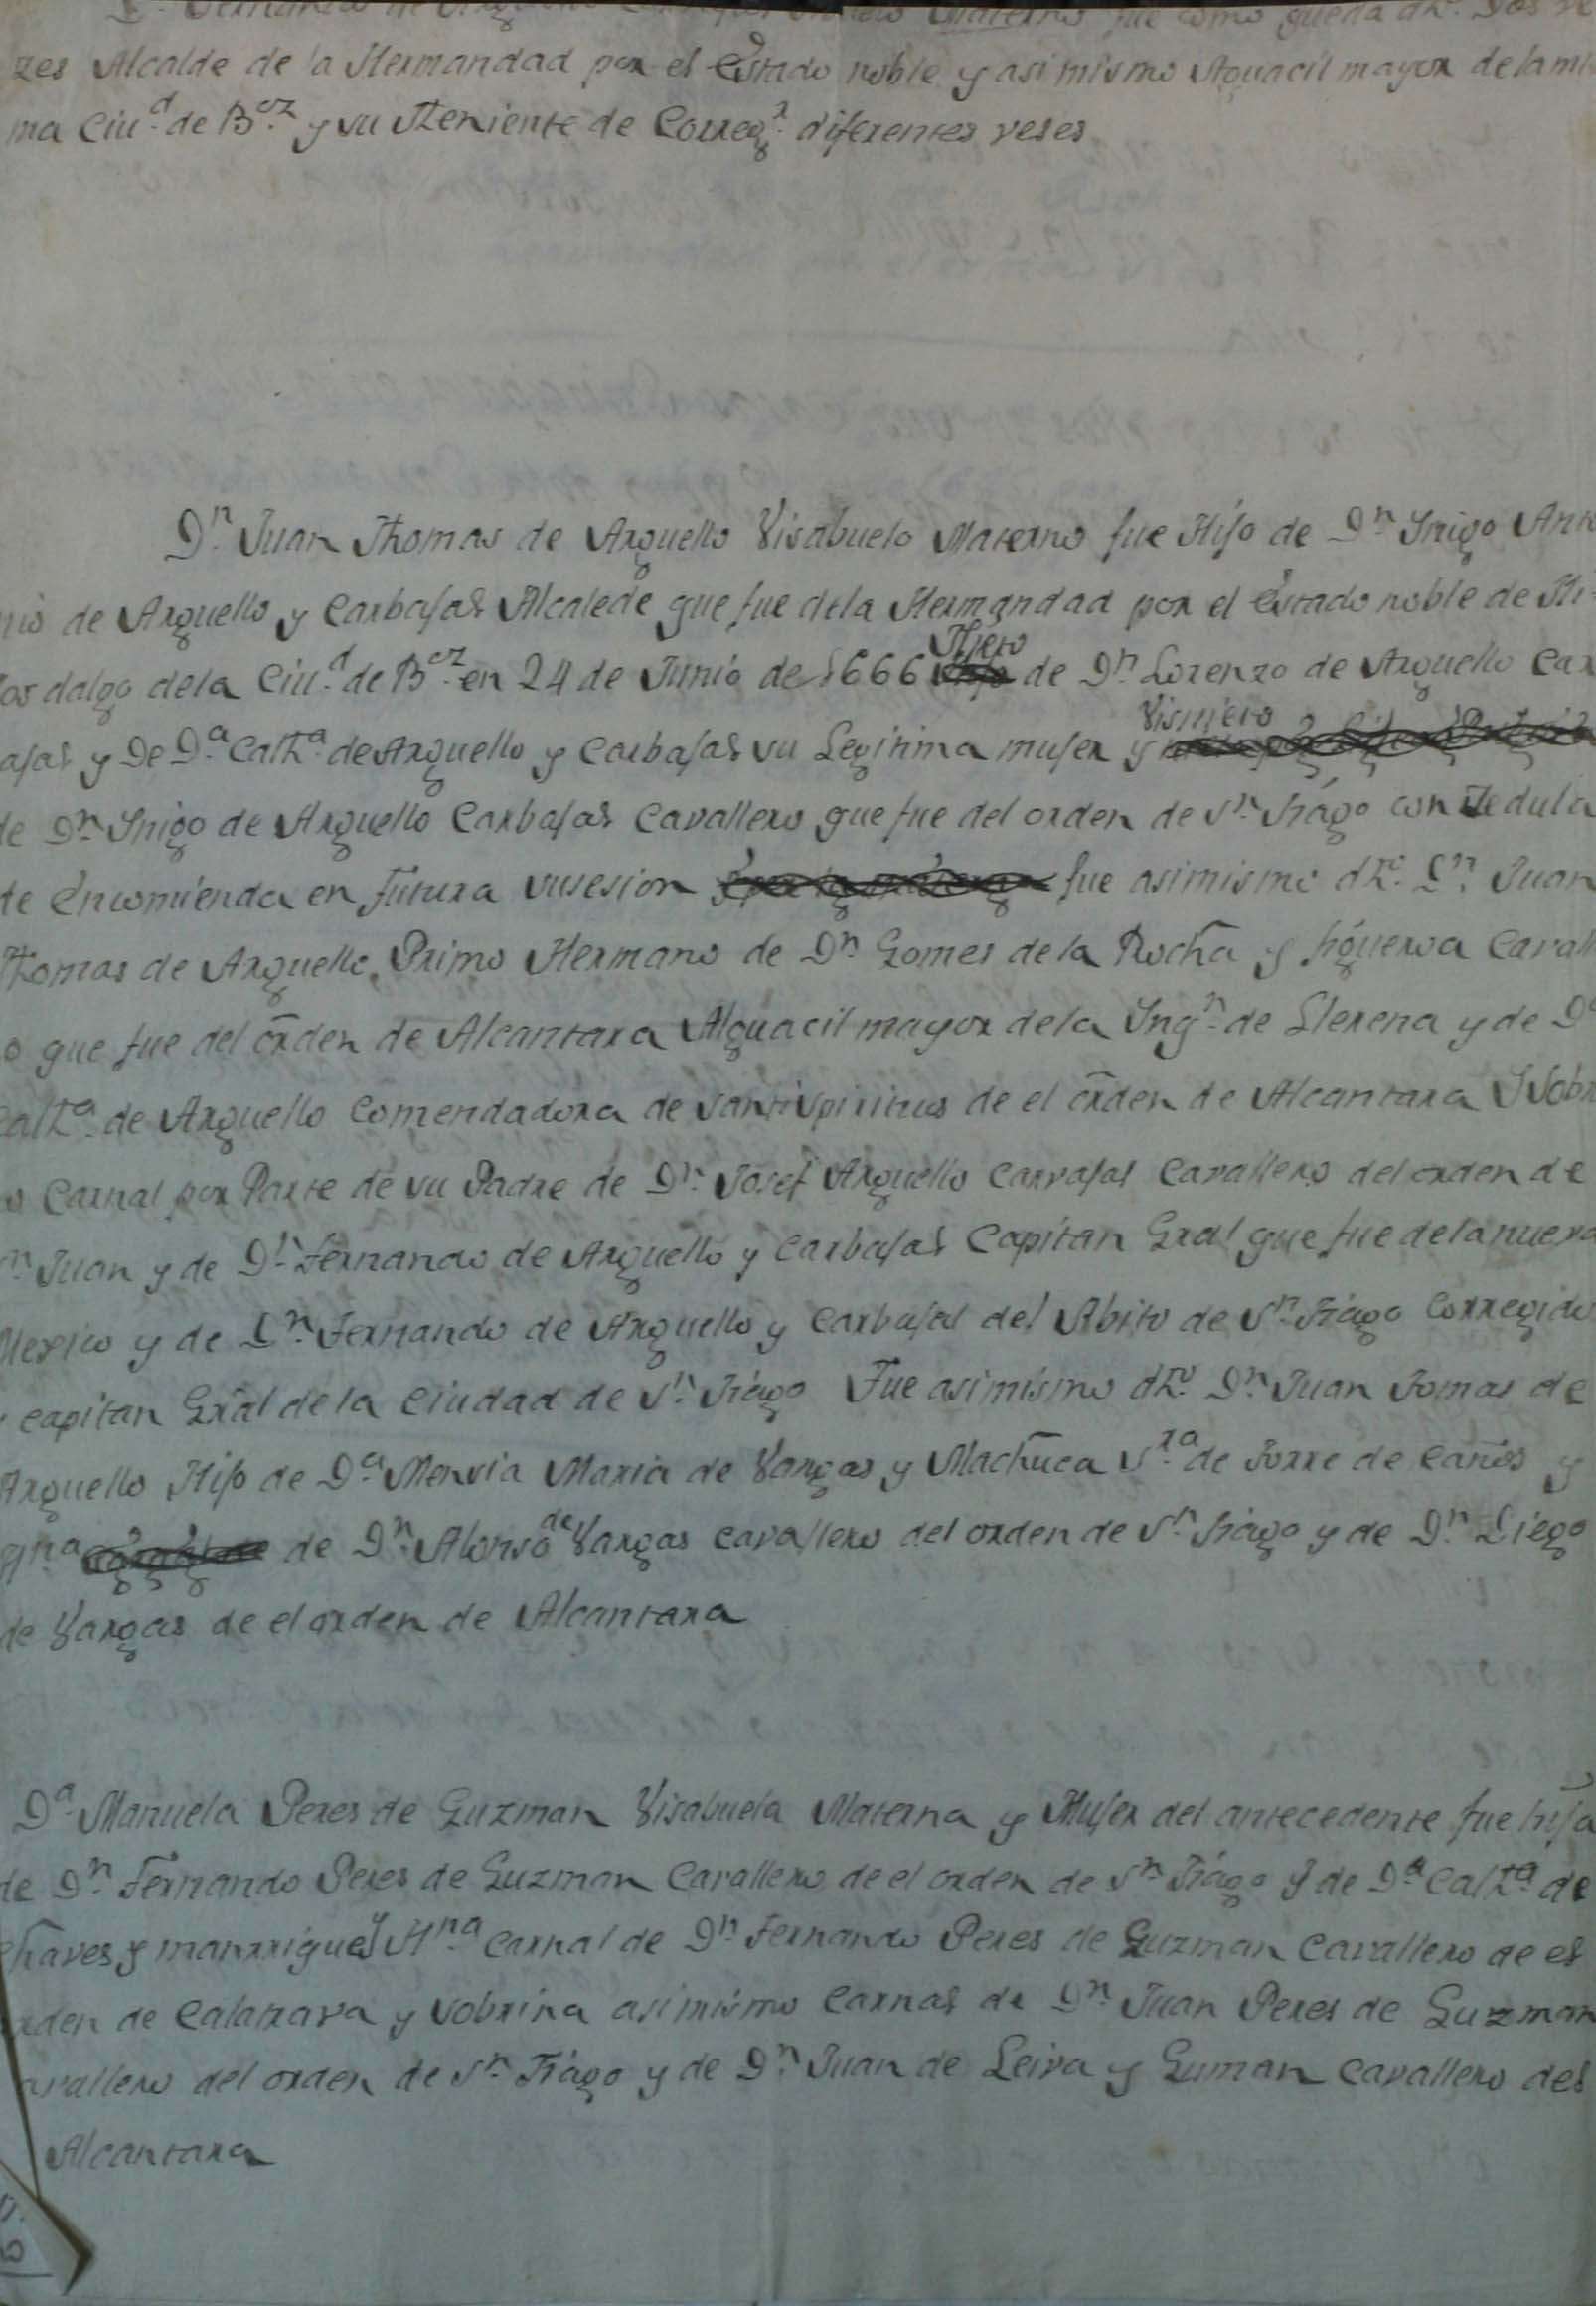 Materno fue como queda dho. Dos ve
zes Alcalde de la Hermandad por el Estado noble y asi mismo Aguacil mayor de la mis
ma Ciu.d de B.oz y su Theniente de Correg.r diferentes veses
D.n Juan Thomas de Arguello Visabuelo Materno fue Hijo de D.n Ynigo Anto
nio de Arguello y Carbajal Alcalede que fue dela Hermandad por el Estado noble de Hi-
jos dalgo dela Ciu.d de B.oz en 24 de Junio de 1666 Nieto de D.n Lorenzo de Arguello Car
ajal y De D.a Calth.a de Arguello y Carbajal su Legitima mujer y Visnieto
de D.n Ynigo de Arguello Carbajal Cavallero que fue del orden de S.n Tiágo con Zedula
de Encomienda en futura susesion fue asimismo dho. D.n Juan
Thomas de Arguello Primo Hermano de D.n Gomes de la Rocha y figueroa Cavall
o que fue del orden de Alcantara Alguacil mayor de la Ynq.n de Llerena y de D.a
Calth.a de Arguello Comendadora de Santispiritus de el orden de Alcantara Y Sobri
o Carnal por Parte de su Padre de D.n Josef Arguello Carvajal Cavallero del orden de
n Juan y de D.n Fernando de Arguello y Carbajal Capitan Gral que fue dela nueva
Mexico y de D.n Fernando de Arguello y Carbajal del Abito de S.n Tiágo Corregido
y capitan Gral de la Ciudad de S.n Tiágo Fue asimismo dho. D.n Juan Tomas de
Arguello Hijo de D.a Mensia Maria de Vargas y Machuca S.ra de Torre de Caños y
de D.n Alonso de Vargas Cavallero del orden de S.n Tiágo y de D.n Diego
de Vargas de el orden de Alcantara
D.a Manuela Peres de Guzman Visabuela Materna y Mujer del antecedente fue hija
de D.n Fernando Peres de Guzman Cavallero de el orden de S.n Tiágo y de D.a Calth.a de
Chaves y manrrique y H.na Carnal de D.n Fernando Peres de Guzman Cavallero de el
orden de Calatrava y Sobrina asimismo Carnal de D.n Juan Peres de Guzman
Cavallero del orden de S.n Tiágo y de D.n Juan de Leiva y Guman Cavallero del
Alcantara